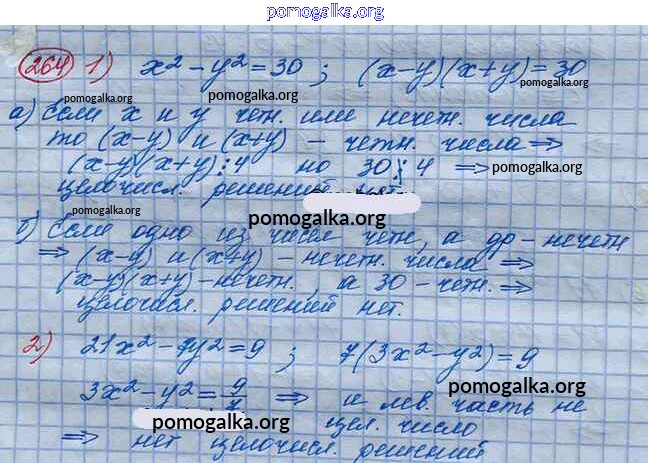 pomogalka.org
264 1) x² - y² = 30 ; (x-y)(x+y) = 30
pomogalka.org pomogalka.org pomogalka.org
а) Если x и y четн. или нечетн. числа
pomogalka.org
то (x-y) и (x+y) - четн. числа ⇒
(x-y)(x+y) ⋮ 4 но 30 ⋮̸ 4 ⇒ pomogalka.org
целочисл. решений нет.
pomogalka.org
pomogalka.org
б) Если одно из чисел четн, а др - нечетн
⇒ (x-y) и (x+y) - нечетн. числа ⇒
(x-y)(x+y) - нечетн., а 30 - четн. ⇒
целочисл. решений нет.
2) 21x² - 7y² = 9 ; 7(3x² - y²) = 9
pomogalka.org
3x² - y² = 9/7 ⇒ и лев. часть не
pomogalka.org цел. число
⇒ нет целочисл. решений
pomogalka.org